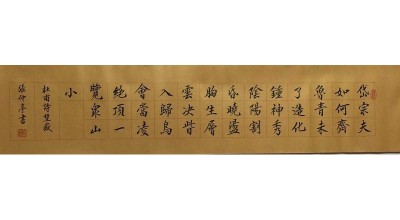 岱宗夫
如何齊
魯青未
了造化
鍾神秀
陰陽割
昏曉盪
胸生層
雲決眥
入歸鳥
會當凌
絶頂一
覽衆山
小
杜甫詩望嶽
張仲亭書